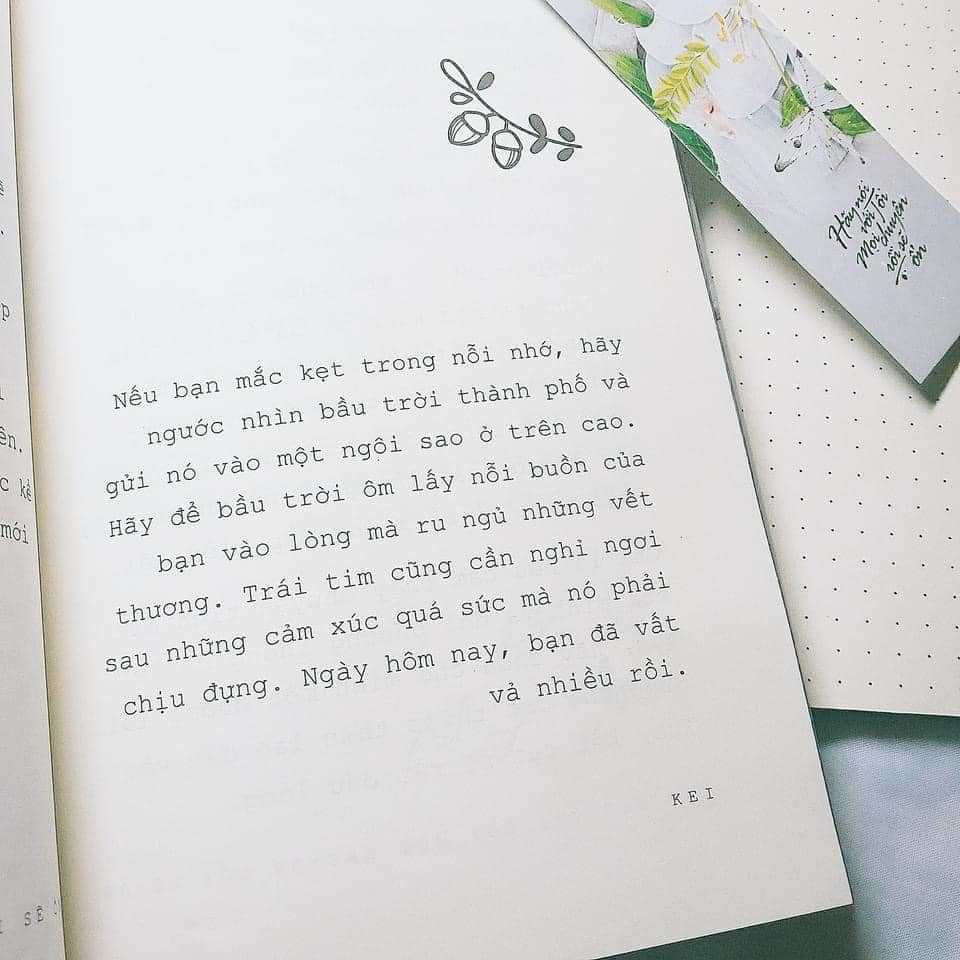 Hãy nói
với tôi
Mọi chuyện
rồi sẽ
ổn
Nếu bạn mắc kẹt trong nỗi nhớ, hãy
ngước nhìn bầu trời thành phố và
gửi nó vào một ngôi sao ở trên cao.
Hãy để bầu trời ôm lấy nỗi buồn của
bạn vào lòng mà ru ngủ những vết
thương. Trái tim cũng cần nghỉ ngơi
sau những cảm xúc quá sức mà nó phải
chịu đựng. Ngày hôm nay, bạn đã vất
vả nhiều rồi.
KEI
ên.
kể
mới
SẼ